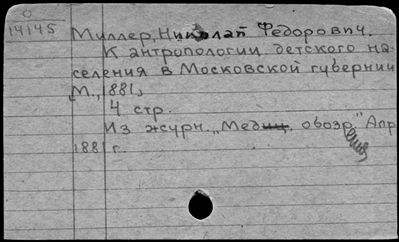 0
14145
Миллер, Николай Федорович.
К антропологии детского на-
селения в Московской губернии
М., 1881,
4 стр.
Из журн. „Мед. обозр." Апр
1881 г.